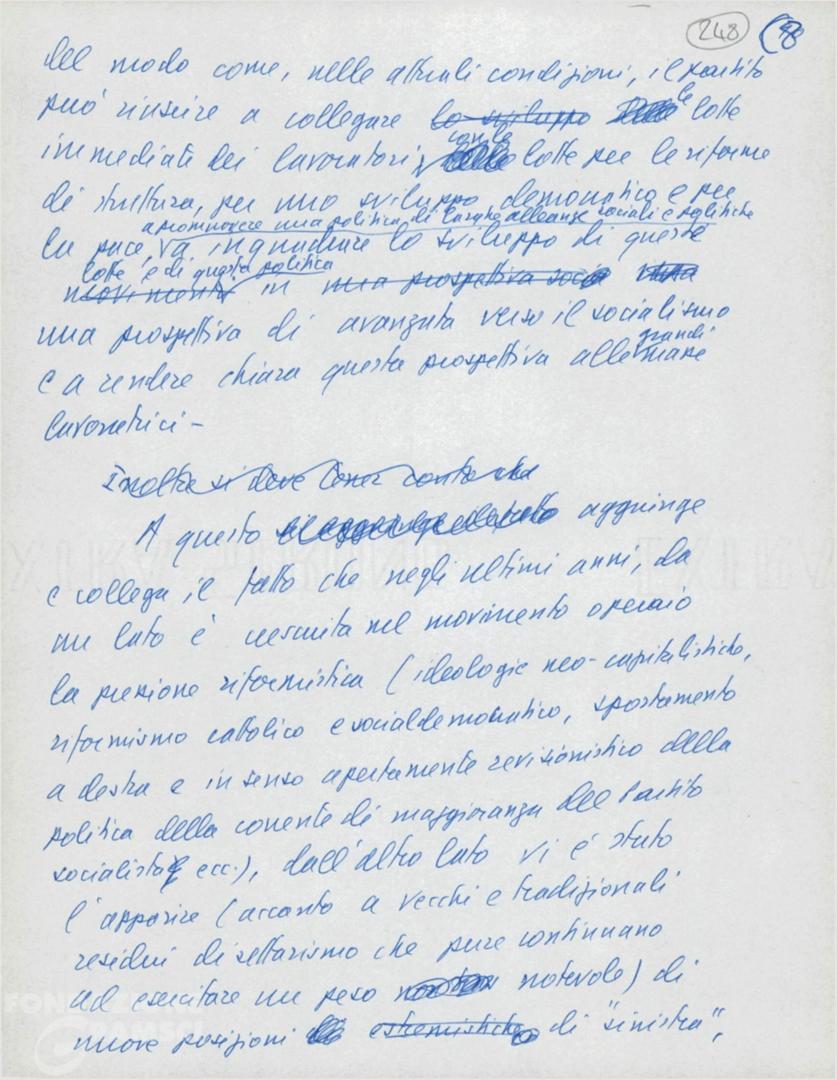 248 8
del modo come, nelle attuali condizioni, il partito
può riuscire a collegare lo sviluppo delle le lotte
immediate dei lavoratori con le lotte per le riforme
di struttura, per uno sviluppo democratico e per
a promuovere una politica di larghe alleanze sociali e politiche
la pace, va inquadrare lo sviluppo di queste
lotte e di questa politica
movimento in una prospettiva socia
una prospettiva di avanzata verso il socialismo
e a rendere chiara questa prospettiva alle grandi masse
lavoratrici -
Inoltre si deve tener conto che
A questo aggiunge
e collega il fatto che negli ultimi anni, da
un lato è cresciuta nel movimento operaio
la pressione riformistica (ideologie neo-capitalistiche,
riformismo cattolico e socialdemocratico, spostamento
a destra e in senso apertamente revisionistico della
politica della corrente di maggioranza del Partito
socialista ecc.), dall'altro lato vi è stato
l'apparire (accanto a vecchi e tradizionali
residui di settarismo che pure continuano
ad esercitare un peso notevole) di
nuove posizioni estremistiche di "sinistra",
FONDAZIONE
GRAMSCI